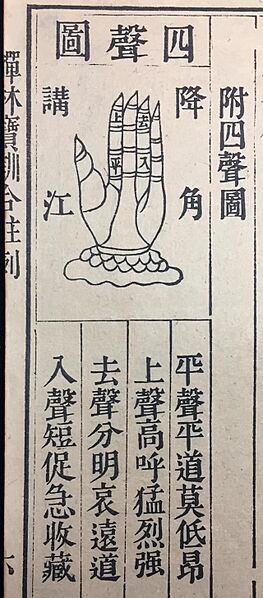 附四聲圖
四聲圖
降角
講江
上平
去入
平聲平道莫低昂
上聲高呼猛烈强
去聲分明哀遠道
入聲短促急收藏
禪林寶訓合註
六